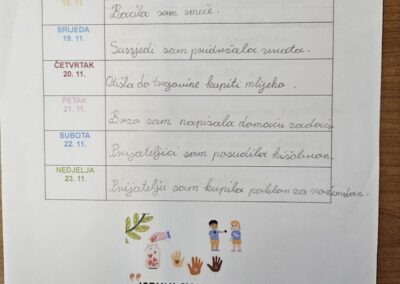 18. 11.
Bacila sam smeće.
SRIJEDA
19. 11.
Susjedi sam pridržala vrata.
ČETVRTAK
20. 11.
Otišla do trgovine kupiti mlijeko.
PETAK
21. 11.
Brzo sam napisala domaću zadaću.
SUBOTA
22. 11.
Prijateljici sam posudila kišobran.
NEDJELJA
23. 11.
Prijatelju sam kupila poklon za rođendan.